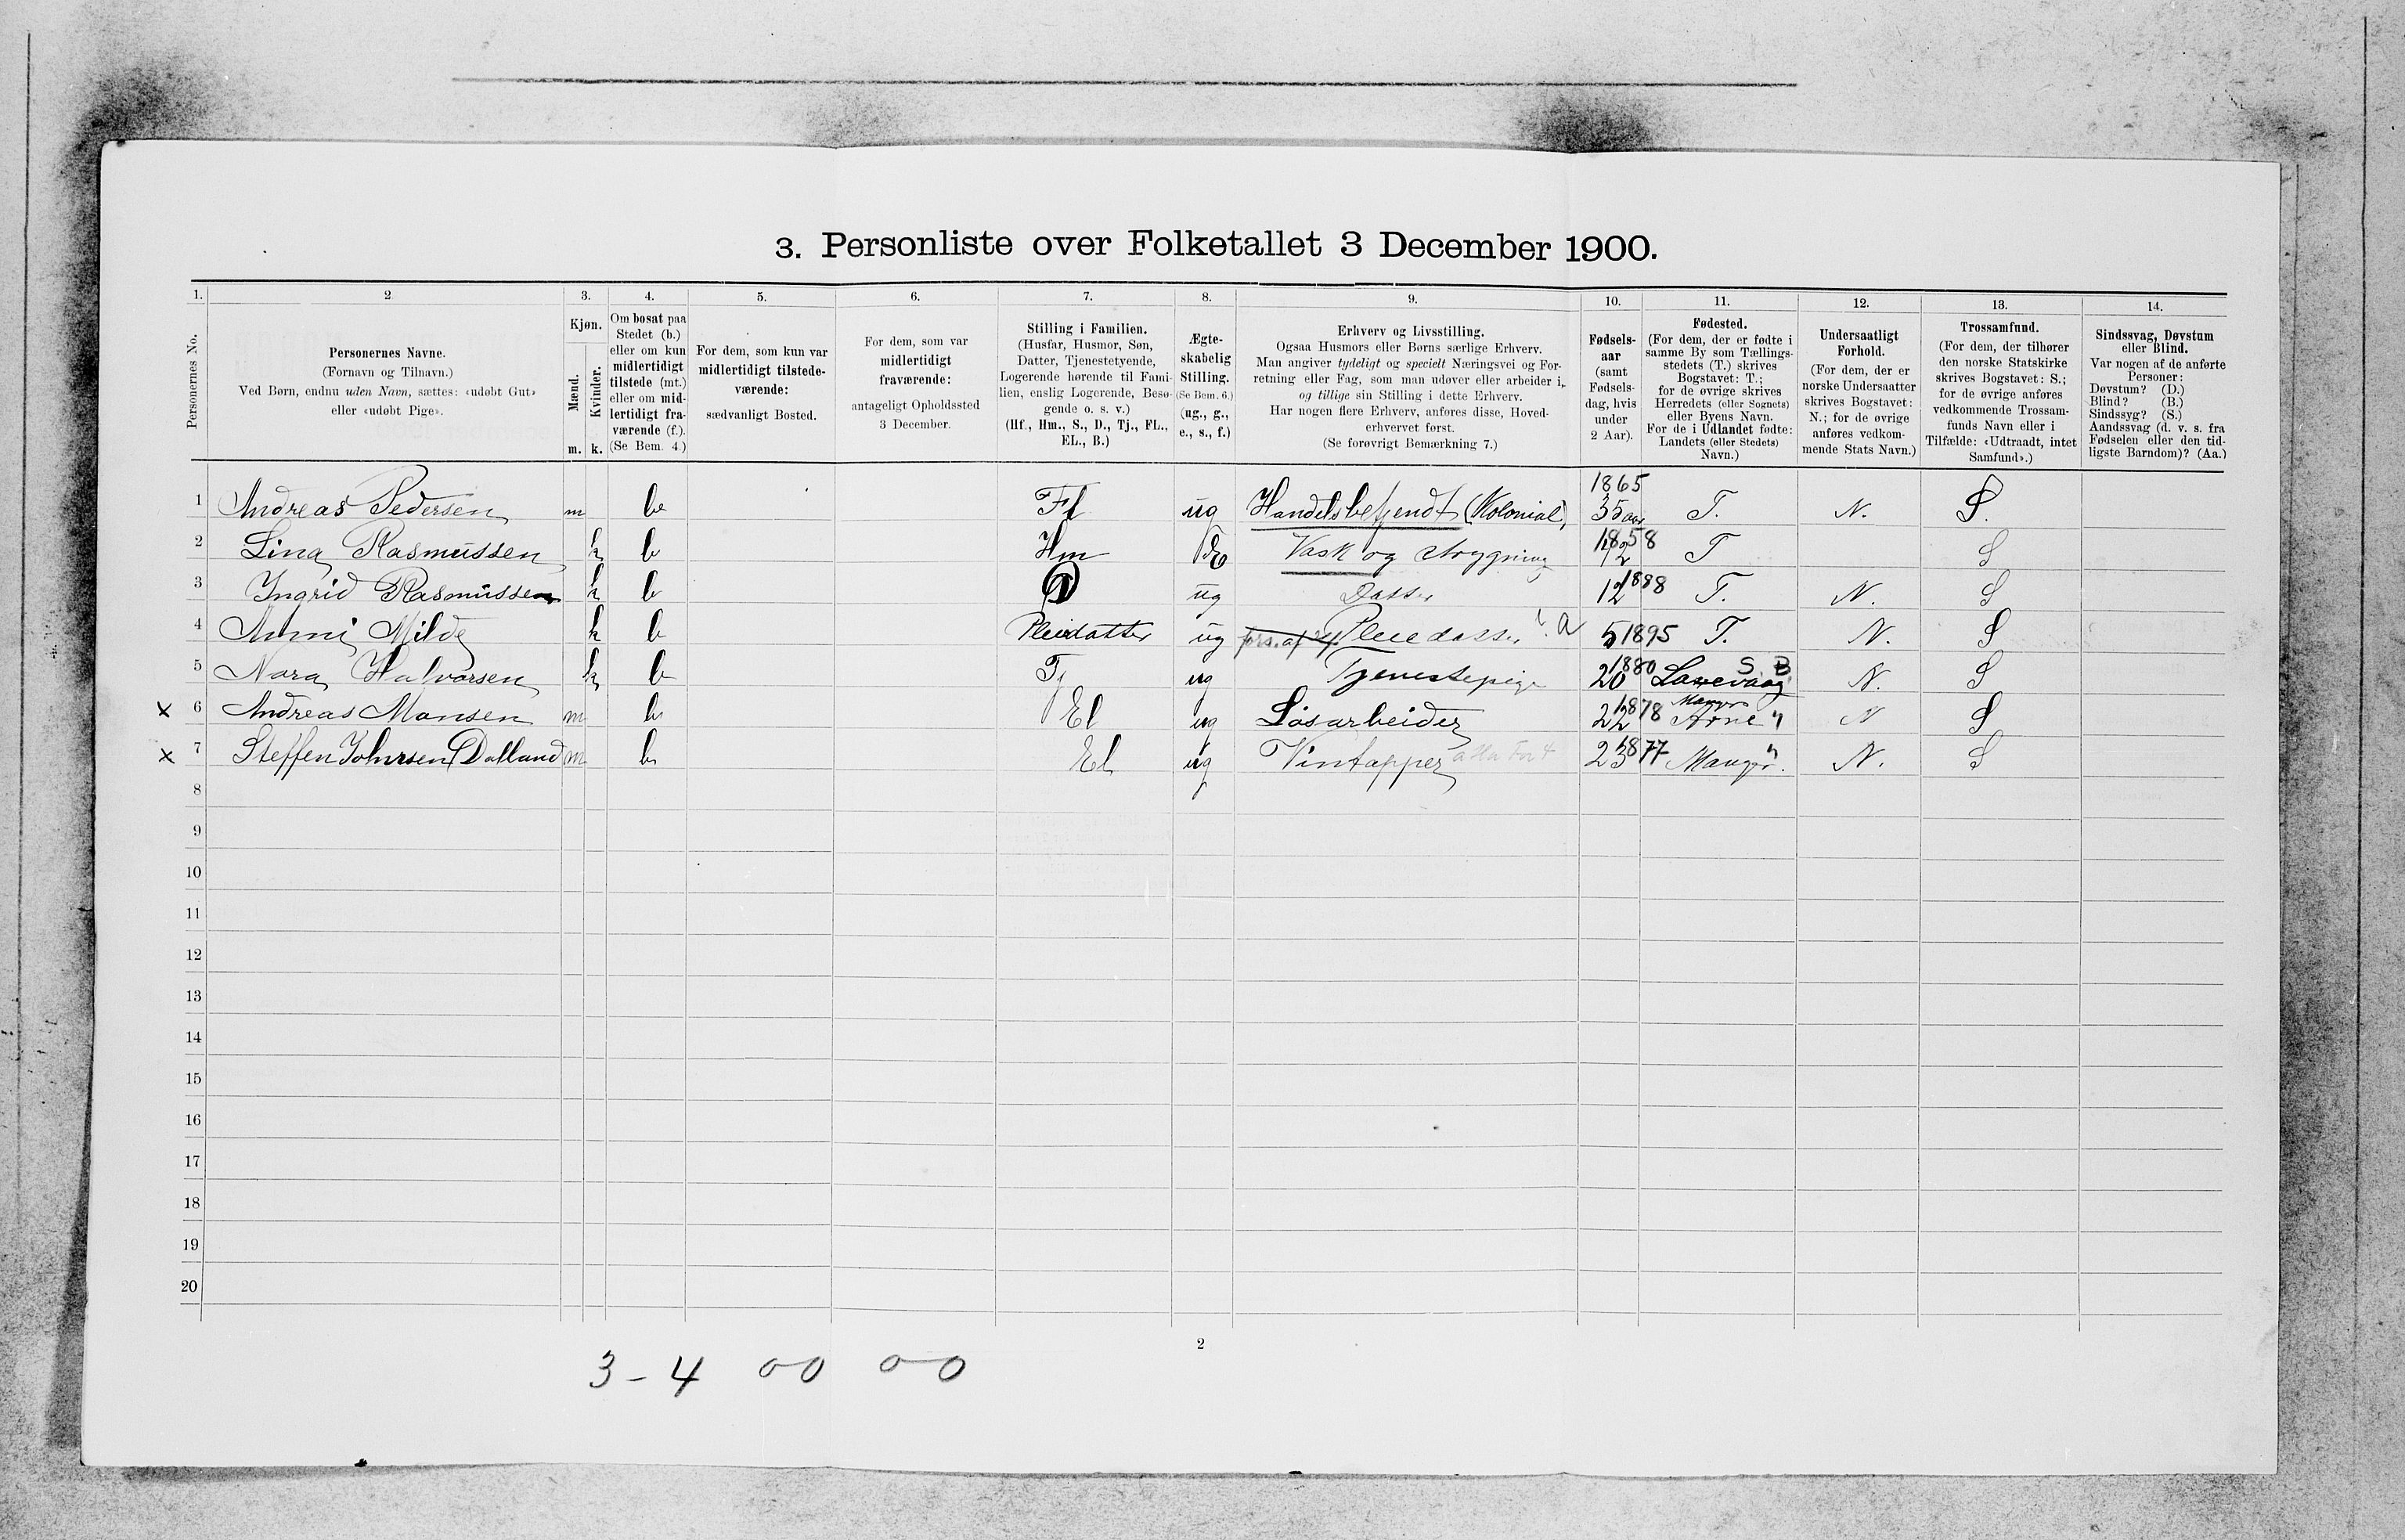 3. Personliste over Folketallet 3 December 1900.
1. 2. 3. 4. 5. 6. 7. 8. 9. 10. 11. 12. 13. 14.
Personernes No.
Personernes Navne.
(Fornavn og Tilnavn.)
Ved Børn, endnu uden Navn, sættes: «udøbt Gut»
eller «udøbt Pige».
Kjøn.
Mænd.
Kvinder.
m. k.
Om bosat paa
Stedet (b.)
eller om kun
midlertidigt
tilstede (mt.)
eller om mid-
lertidigt fra-
værende (f.).
(Se Bem. 4.)
For dem, som kun var
midlertidigt tilstede-
værende:
sædvanligt Bosted.
For dem, som var
midlertidigt
fraværende:
antageligt Opholdssted
3 December.
Stilling i Familien.
(Husfar, Husmor, Søn,
Datter, Tjenestetyende,
Logerende hørende til Fami-
lien, enslig Logerende, Besø-
gende o. s. v.)
(Hf., Hm., S., D., Tj., FL.,
EL., B.)
Ægte-
skabelig
Stilling.
(Se Bem. 6.)
(ug., g.,
e., s., f.)
Erhverv og Livsstilling.
Ogsaa Husmors eller Børns særlige Erhverv.
Man angiver tydeligt og specielt Næringsvei og For-
retning eller Fag, som man udøver eller arbeider i,
og tillige sin Stilling i dette Erhverv.
Har nogen flere Erhverv, anføres disse, Hoved-
erhvervet først.
(Se forøvrigt Bemærkning 7.)
Fødsels-
aar
(samt
Fødsels-
dag, hvis
under
2 Aar).
Fødested.
(For dem, der er fødte i
samme By som Tællings-
stedets (T.) skrives
Bogstavet: T.;
for de øvrige skrives
Herredets (eller Sognets)
eller Byens Navn.
For de i Udlandet fødte:
Landets (eller Stedets)
Navn.)
Undersaatligt
Forhold.
(For dem, der er
norske Undersaatter
skrives Bogstavet:
N.; for de øvrige
anføres vedkom-
mende Stats Navn.)
Trossamfund.
(For dem, der tilhører
den norske Statskirke
skrives Bogstavet: S.;
for de øvrige anføres
vedkommende Trossam-
funds Navn eller i
Tilfælde: «Udtraadt, intet
Samfund».)
Sindssvag, Døvstum
eller Blind.
Var nogen af de anførte
Personer:
Døvstum? (D.)
Blind? (B.)
Sindssyg? (S.)
Aandssvag (d. v. s. fra
Fødselen eller den tid-
ligste Barndom)? (Aa.)
1 Andreas Pedersen m b Fl ug Handelsbetjendt (Kolonial) 1865 35 aar T. N. S.
2 Lina Rasmussen k b Hm E Vask og Strygning 1858 42 T S
3 Ingrid Rasmussen k b D ug Datter 1888 12 T. N. S
4 Anni Milde k b Pleiedatter ug fors. af Pleiedatter 1895 5 T. N. S
5 Nora Halvorsen k b Tj ug Tjenestepige 1880 20 Laxevaag S. B N. S
x 6 Andreas Monsen m b El ug Løsarbeider 1878 22 Manger Arne " N S
x 7 Steffen Johnsen Dolland m b El ug Vintapper 1877 23 Manger " N. S
8
9
10
11
12
13
14
15
16
17
18
19
20
2
3-4 00 00